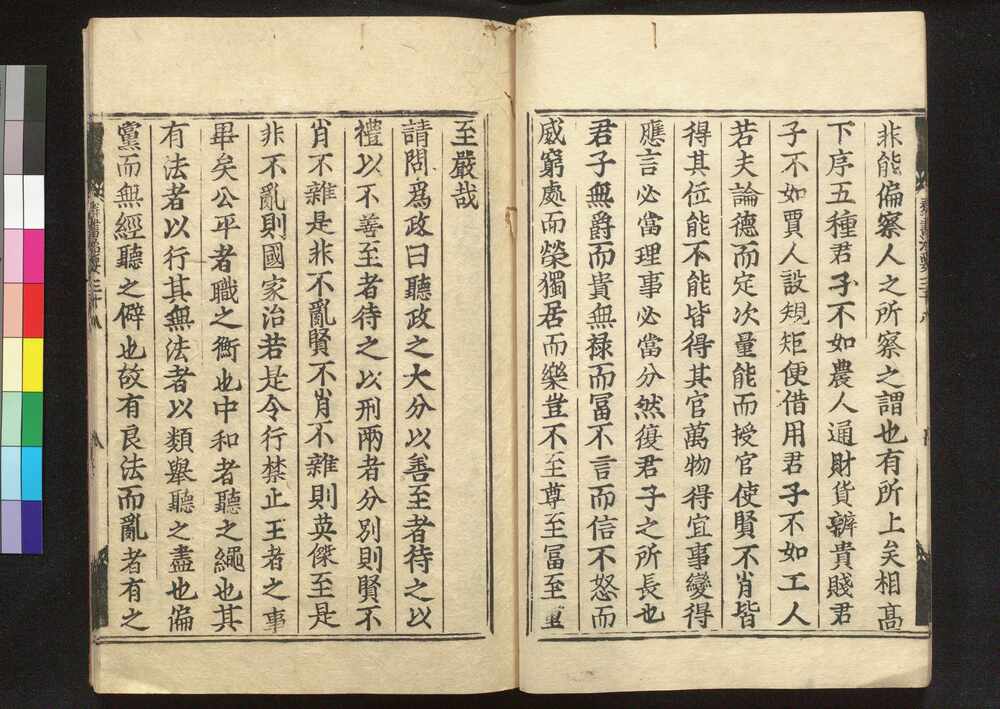 非能偏察人之所察之謂也有所上矣相髙
下序五種君子不如農人通財貨辨貴賤君
子不如賈人設規矩便借用君子不如工人
若夫論德而定次量能而授官使賢不肖皆
得其位能不能皆得其官萬物得宜事變得
應言必當理事必當分然復君子之所長也
君子無爵而貴無禄而冨不言而信不怒而
威窮處而榮獨居而樂豈不至尊至冨至重
至嚴哉
請問爲政曰聽政之大分以善至者待之以
禮以不善至者待之以刑兩者分别則賢不
肖不雜是非不亂賢不肖不雜則英傑至是
非不亂則國家治若是令行禁止王者之事
畢矣公平者職之衡也中和者聽之繩也其
有法者以行其無法者以類舉聽之盡也偏
黨而無經聽之僻也故有良法而亂者有之
群書治要三十八
八